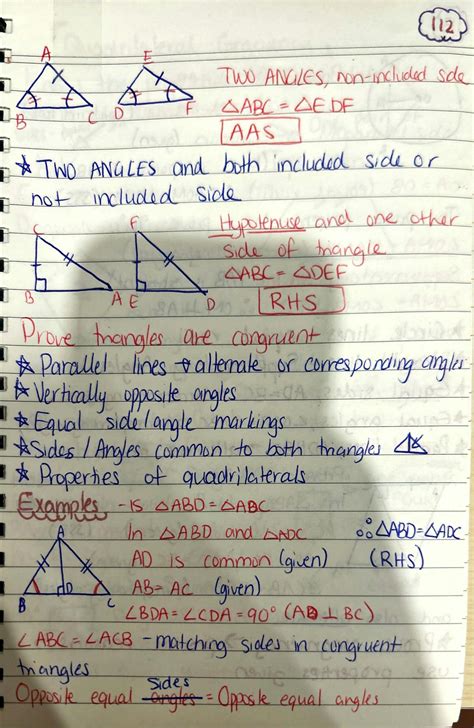 112
A
E
B
C
D
F
TWO ANGLES, non-included side
△ABC = △EDF
AAS
* TWO ANGLES and both included side or
not included side
C
F
B
A
E
D
Hypotenuse and one other
side of triangle
△ABC = △DEF
RHS
Prove triangles are congruent
* Parallel lines → alternate or corresponding angles
* Vertically opposite angles
* Equal side/angle markings
* Sides / Angles common to both triangles
* Properties of quadrilaterals
Examples - IS △ABD = △ABC
A
B
D
C
In △ABD and △ADC
∴ △ABD = △ADC
AD is common (given)
(RHS)
AB = AC (given)
∠BDA = ∠CDA = 90° (AD ⊥ BC)
∠ABC = ∠ACB - matching sides in congruent
triangles
Opposite equal angles sides = Opposte equal angles